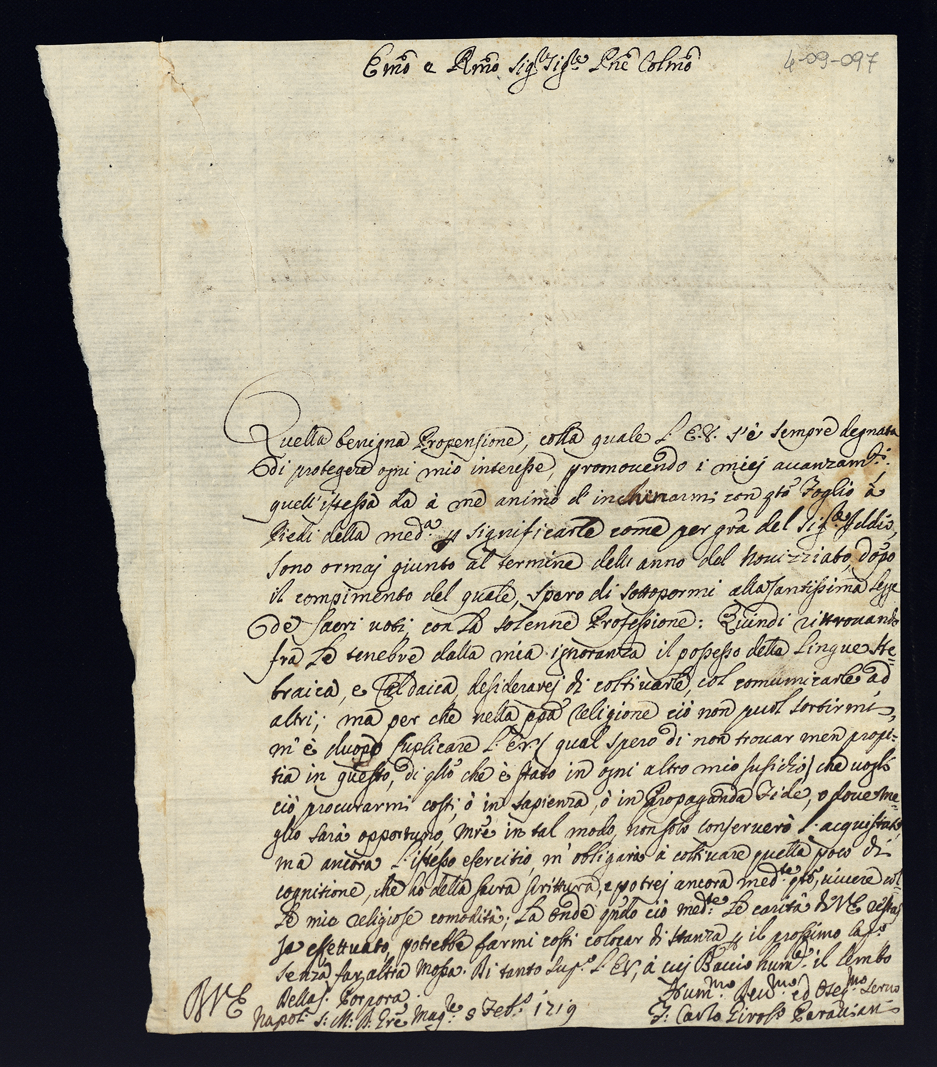 Emo e Rmo Sigr Sigre Pne Colmo
4-09-097
Quella benigna Propensione, colla quale l'E.V. s'è sempre degnata
di protegere ogni mio interesse, promovendo i miej avanzamti:
quell'istessa dà à me animo d'inchinarmi con qto Foglio à
Piedi della meda p significarle come per gra del Sigre Iddio,
sono ormaj giunto al termine dell'anno del Novizziato, dopo
il compimento del quale, spero di sottopormi alla santissima legge
de' sacri voti, con la solenne Professione: Quindi rittrovando
frà le tenebre dalla mia ignoranza il possesso della Lingue He=
braica, e Caldaica, desiderarej di coltivarle, col comunicarle ad
altri; ma per che nella ppa Religione ciò non puol sortirmi,
m'è duopo suplicare l'EV (qual spero di non trovar men propi=
tia in questo, di qllo che è stato in ogni altro mio susidio) che vogli
ciò procurarmi costi, ò in sapienza, ò in Propaganda Fide, o dove me=
glio sarà opportuno, mtre in tal modo, non solo conserverò l'acquistato,
ma ancora l'istesso esercitio, m'obligarà à coltivare quella poco di
cognitione, che ho della sacra scrittura, e potrej ancora medte qto, vivere col=
le mie religiose comodità; La onde qndo ciò medte la carità di VE restas=
se effettuato, potrebbe farmi costi colocar di stanza p il prossimo
senza far altra mossa. Di tanto supco l'EV, à cuj Baccio humte il lembo
della s. Porpora.
Napoli S. M. d. Gre Magre 8 Febo 1719
Hummo Devmo ed Ossegmo Servo
F. Carlo
DVE